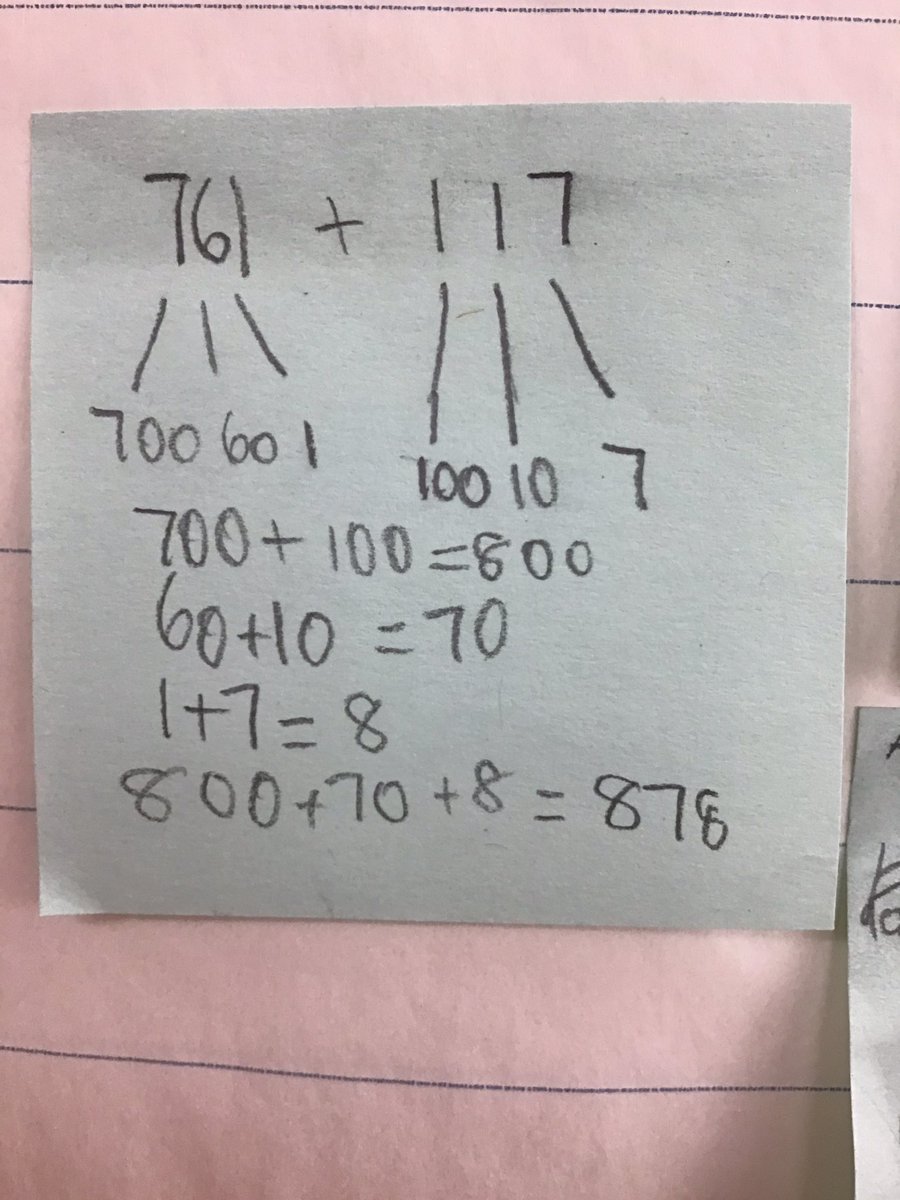 761 + 117
700 60 1 100 10 7
700 + 100 = 800
60+10 = 70
1+7= 8
800+70 +8 = 878